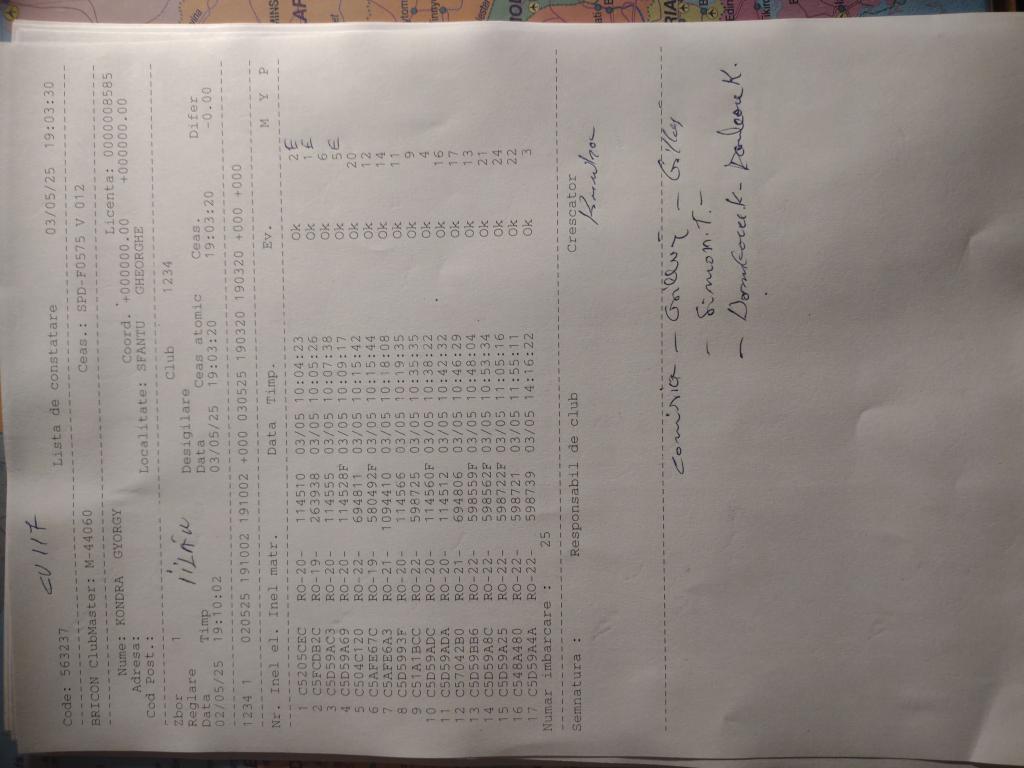 CU 117
Code: 563237 Lista de constatare 03/05/25 19:03:30
BRICON ClubMaster: M-44060 Ceas.: SPD-F0575 V 012
Nume: KONDRA GYORGY Coord. +000000.00 Licenta: 0000008585
Adresa: +000000.00
Cod Post.: Localitate: SFANTU GHEORGHE
Zbor 1 Club 1234
Reglare Desigilare
Data Timp Data Ceas atomic Ceas. Difer
02/05/25 19:10:02 03/05/25 19:03:20 19:03:20 -0.00
1234 1 020525 191002 191002 +000 030525 190320 190320 +000 +000
Nr. Inel el. Inel matr. Data Timp. Ev. M Y P
1 C5205CEC RO-20- 114510 03/05 10:04:23 Ok 2 E
2 C5FCDB2C RO-19- 263938 03/05 10:05:26 Ok 1 E
3 C5D59AC3 RO-20- 114555 03/05 10:07:38 Ok 6
4 C5D59A69 RO-20- 114528F 03/05 10:09:17 Ok 5 E
5 C504C120 RO-22- 694811 03/05 10:15:42 Ok 20
6 C5AFE67C RO-19- 580492F 03/05 10:15:44 Ok 12
7 C5AFE6A3 RO-21- 1094410 03/05 10:18:08 Ok 14
8 C5D5993F RO-20- 114566 03/05 10:19:35 Ok 11
9 C51A1BCC RO-22- 599725 03/05 10:35:35 Ok 9
10 C5D59ADC RO-20- 114560F 03/05 10:38:22 Ok 4
11 C5D59ADA RO-20- 114512 03/05 10:42:32 Ok 16
12 C57042B0 RO-21- 694806 03/05 10:46:29 Ok 17
13 C5D59BB6 RO-22- 598559F 03/05 10:48:04 Ok 13
14 C5D59A8C RO-22- 598562F 03/05 10:53:34 Ok 21
15 C5D59A25 RO-22- 598722F 03/05 11:05:16 Ok 24
16 C548A480 RO-22- 598721 03/05 11:55:11 Ok 22
17 C5D59A4A RO-22- 598739 03/05 14:16:22 Ok 3
Numar imbarcare : 25
Semnatura : Responsabil de club Crescator
Comisia
- Simon T. -